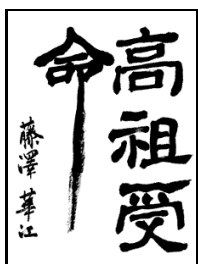 高祖受
命
藤澤華江